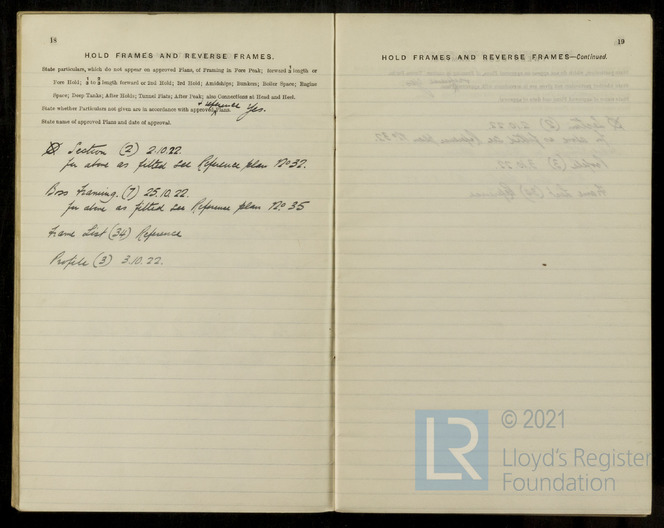 18
HOLD FRAMES AND REVERSE FRAMES.
State particulars, which do not appear on approved Plans, of Framing in Fore Peak; forward ½ length or
Fore Hold; ½ to ¾ length forward or 2nd Hold; 3rd Hold; Amidships; Bunkers; Boiler Space; Engine
Space; Deep Tanks; After Holds; Tunnel Flats; After Peak; also Connections at Head and Heel.
State whether Particulars not given are in accordance with approved + reference Plans. Yes.
State name of approved Plans and date of approval.
Section (2) 2.10.22.
for above as fitted see Reference plan No 37.
Boss Framing. (7) 25.10.22.
for above as fitted see Reference plan No 35
Frame List (34) Reference
Profile (3) 3.10.22.
19
HOLD FRAMES AND REVERSE FRAMES—Continued.
LR
© 2021
Lloyd's Register
Foundation